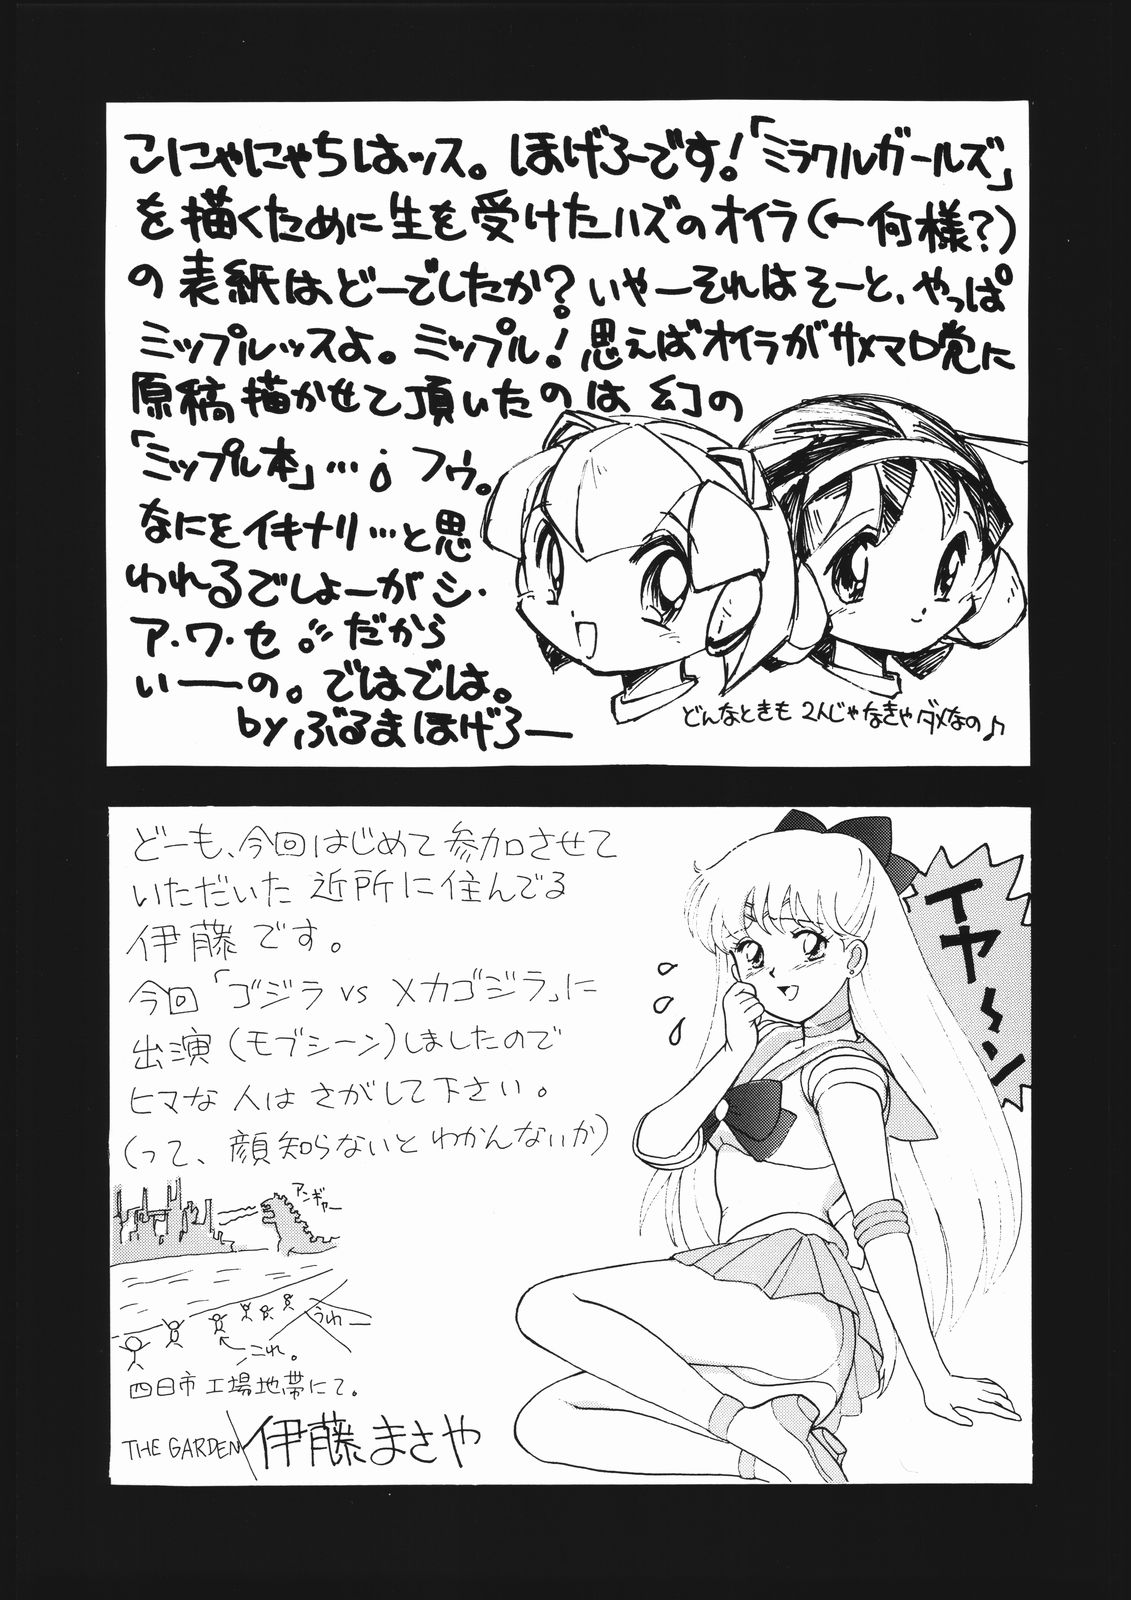 こにゃにゃちはッス。ほげろーです!「ミラクルガールズ」
を描くために生を受けたハズのオイラ(←何様?)
の表紙は、どーでしたか?いやーそれはそーと、やっぱ
ミップルッスよ。ミップル!思えばオイラがサメマロ党に
原稿描かせて頂いたのは幻の
「ミップル本」…。フゥ。
なにをイキナリ…と思
われるでしょーがシ・
ア・ワ・セ。だから
いーの。ではでは。
by ぶるまほげろー
どんなときも 2人じゃなきゃダメなの♪
どーも、今回はじめて参加させて
いただいた近所に住んでる
伊藤です。
今回「ゴジラ vs メカゴジラ」に
出演(モブシーン)しましたので
ヒマな人はさがして下さい。
(って、顔知らないとわかんないか)
イヤ〜ン
アンギャー
うわー
これ。
四日市工場地帯にて。
THE GARDEN/伊藤まさや